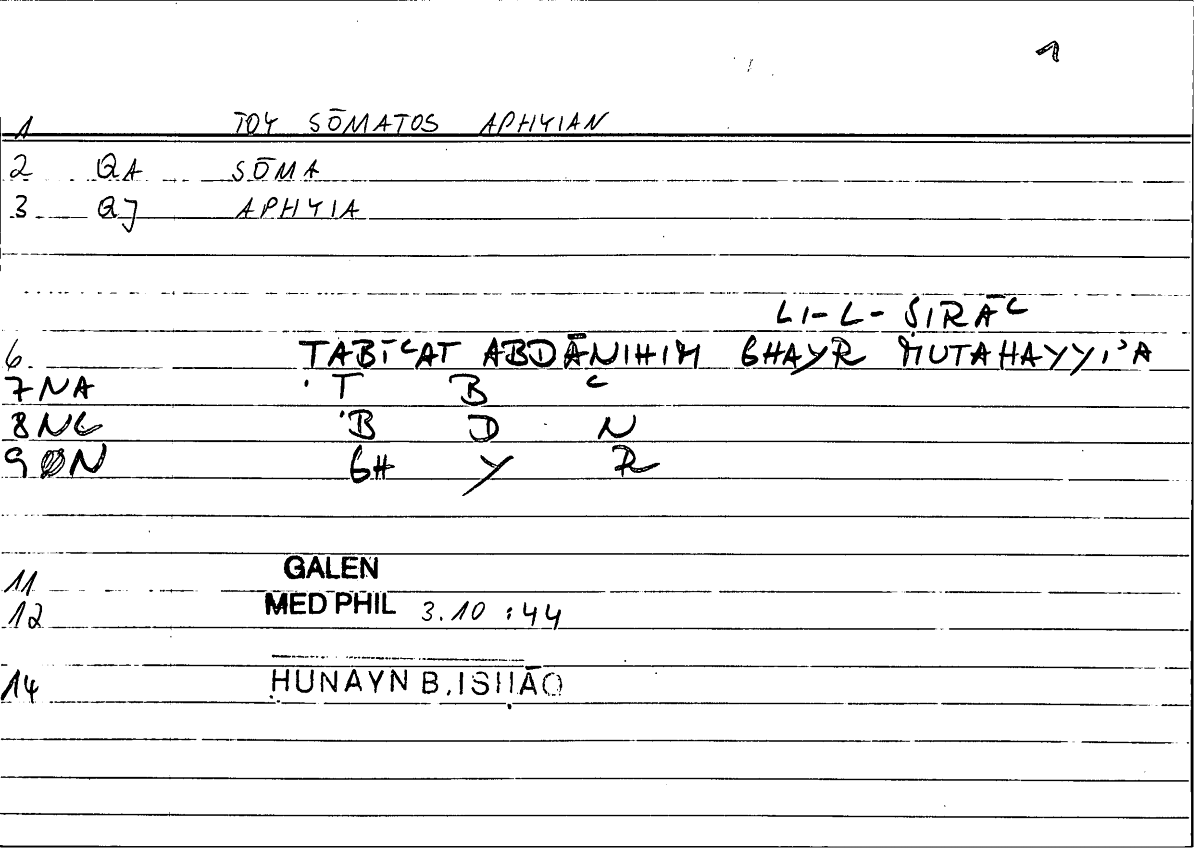 1
1 TOY SŌMATOS APHYIAN
2 QA SŌMA
3 QJ APHYIA
LI-L-ṢIRĀʿ
6 ṬABĪʿAT ABDĀNIHIM GHAYR MUTAHAYYIʾA
7 NA Ṭ B ʿ
8 NC B D N
9 ØN GH Y R
11 GALEN
12 MED PHIL 3.10 :44
14 ḤUNAYN B. ISḤĀQ